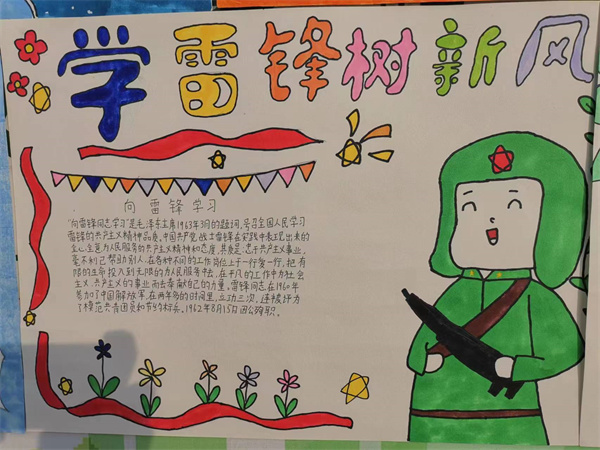 学雷锋树新风
向雷锋学习
"向雷锋同志学习"是毛泽东主席1963年3月的题词,号召全国人民学习
雷锋的共产主义精神品质。中国共产党战士雷锋在实践中表现出来的
全心全意为人民服务的共产主义精神和态度,具表是:忠于共产主义事业,
毫不利己帮助别人,在各种不同的工作岗位上干一行爱一行,把有
限的生命投入到无限的为人民服务中去,在平凡的工作中为社会
主义、共产主义的事业而去奉献自己的力量。雷锋同志在1960年
参加了中国解放军,在两年多的时间里,立功三次,连续评为
了模范共青团员和节约标兵,1962年8月15日因公殉职。